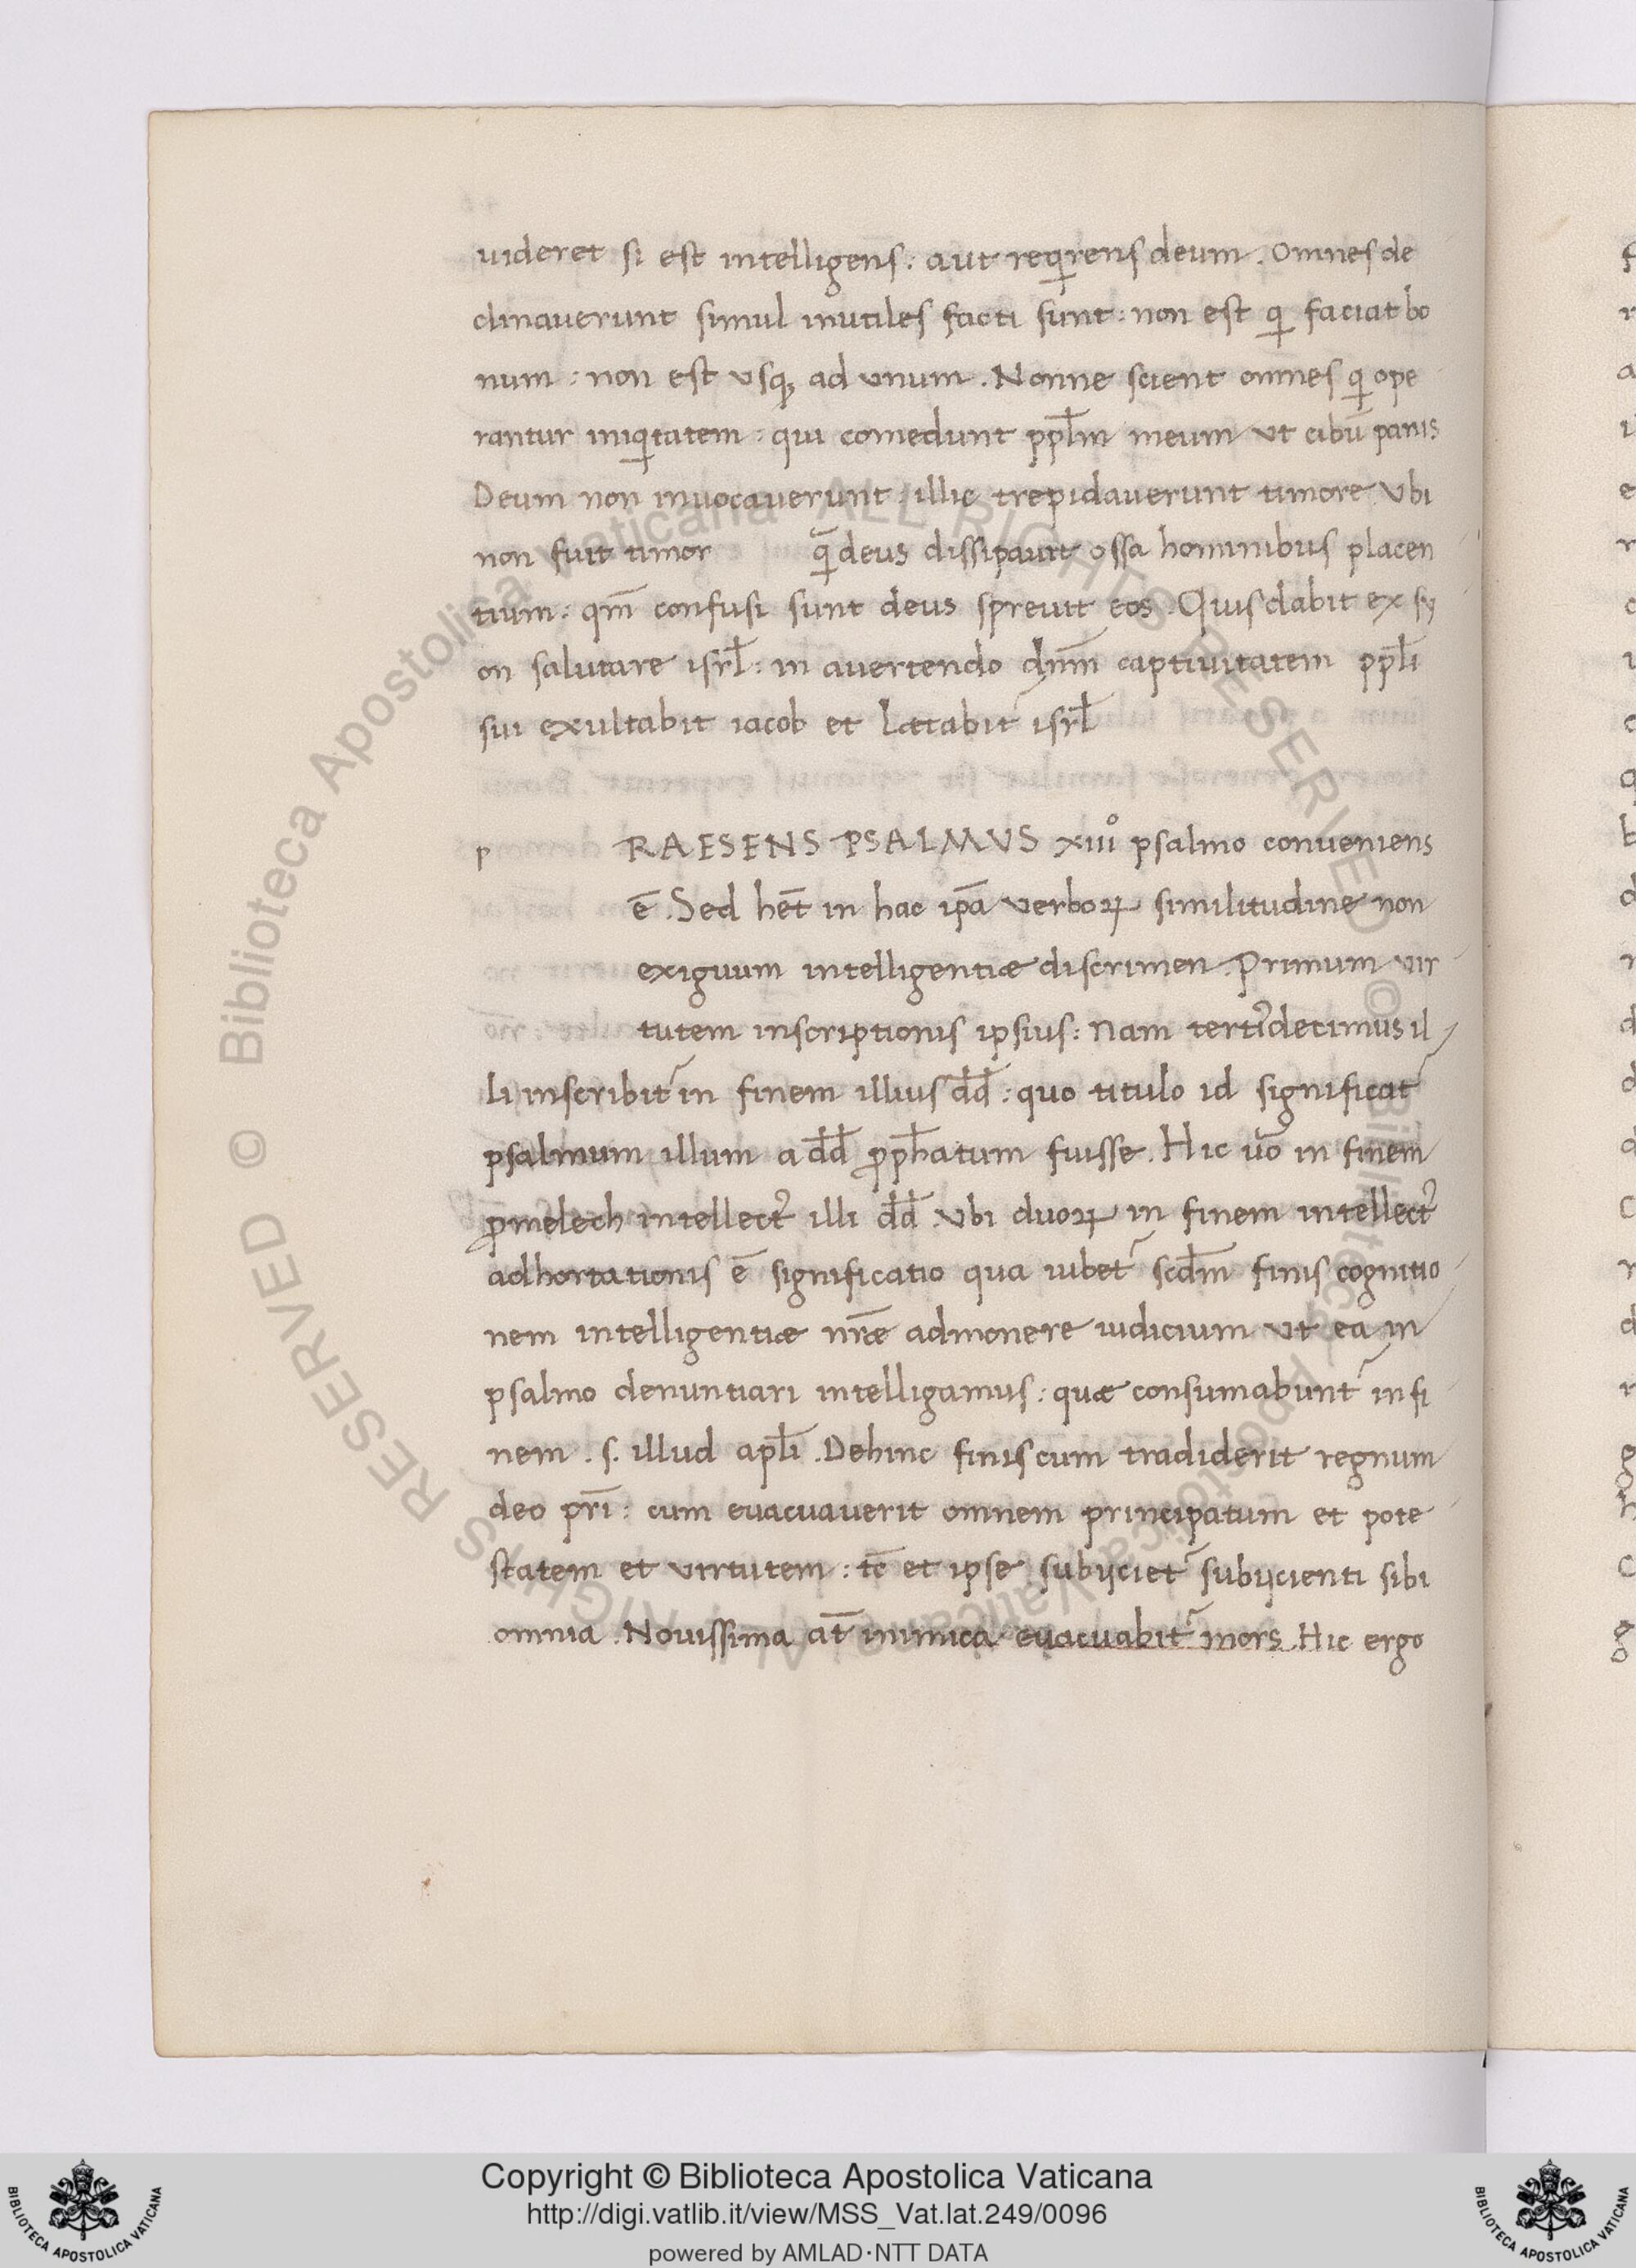 uideret si est intelligens: aut reqͥrens deum. Omnes de
clinauerunt simul inutiles facti sunt: non est qͥ faciat bo
num: non est vsqꝫ ad vnum. Nonne scient omnes qͥ ope
rantur iniqͥtatem: qui comedunt ppl̄m meum vt cibū panis
Deum non inuocauerunt: illic trepidauerunt timore Vbi
non fuit timor qm̄ deus dissipauit ossa hominibus placen
tium: qm̄ confusi sunt deus spreuit eos. Quis dabit ex sy
on salutare isrl̄: in auertendo dnm̄ captiuitatem ppl̄i
sui exultabit iacob et Lætabit᷑ isrl̄
p RAESENS PSALMVS xiiiº psalmo conueniens
ē. Sed hēt in hac ip̄a verboꝝ similitudine non
exiguum intelligentiæ discrimen. Primum vir
tutem inscriptionis ipsius: Nam terti᾽decimus il
li inscribit᷑ in finem illius dd̄: quo titulo id significat᷑
psalmum illum a dd̄ ꝓph̄atum fuisse. Hic uō in finem
ꝓmelech intellect᾽ illi dd̄ Vbi duoꝝ in finem intellect᾽
adhortationis ē significatio qua iubet᷑ scdm̄ finis cognitio
nem intelligentiæ nr̄æ admonere iudicium vt ea in
psalmo denuntiari intelligamus: quæ consumabunt᷑ in fi
nem. s. illud apl̄i. Dehinc finis cum tradiderit regnum
deo pr̄i: cum euacuauerit omnem principatum et pote
statem et virtutem: tc̄ et ipse subijciet᷑ subijcienti sibi
omnia. Nouissima at̄ inimica euacuabit᷑ mors. Hic ergo
Biblioteca Apostolica Vaticana ALL RIGHTS RESERVED ©
Copyright © Biblioteca Apostolica Vaticana
http://digi.vatlib.it/view/MSS_Vat.lat.249/0096
powered by AMLAD·NTT DATA
BIBLIOTECA APOSTOLICA VATICANA
BIBLIOTECA APOSTOLICA VATICANA